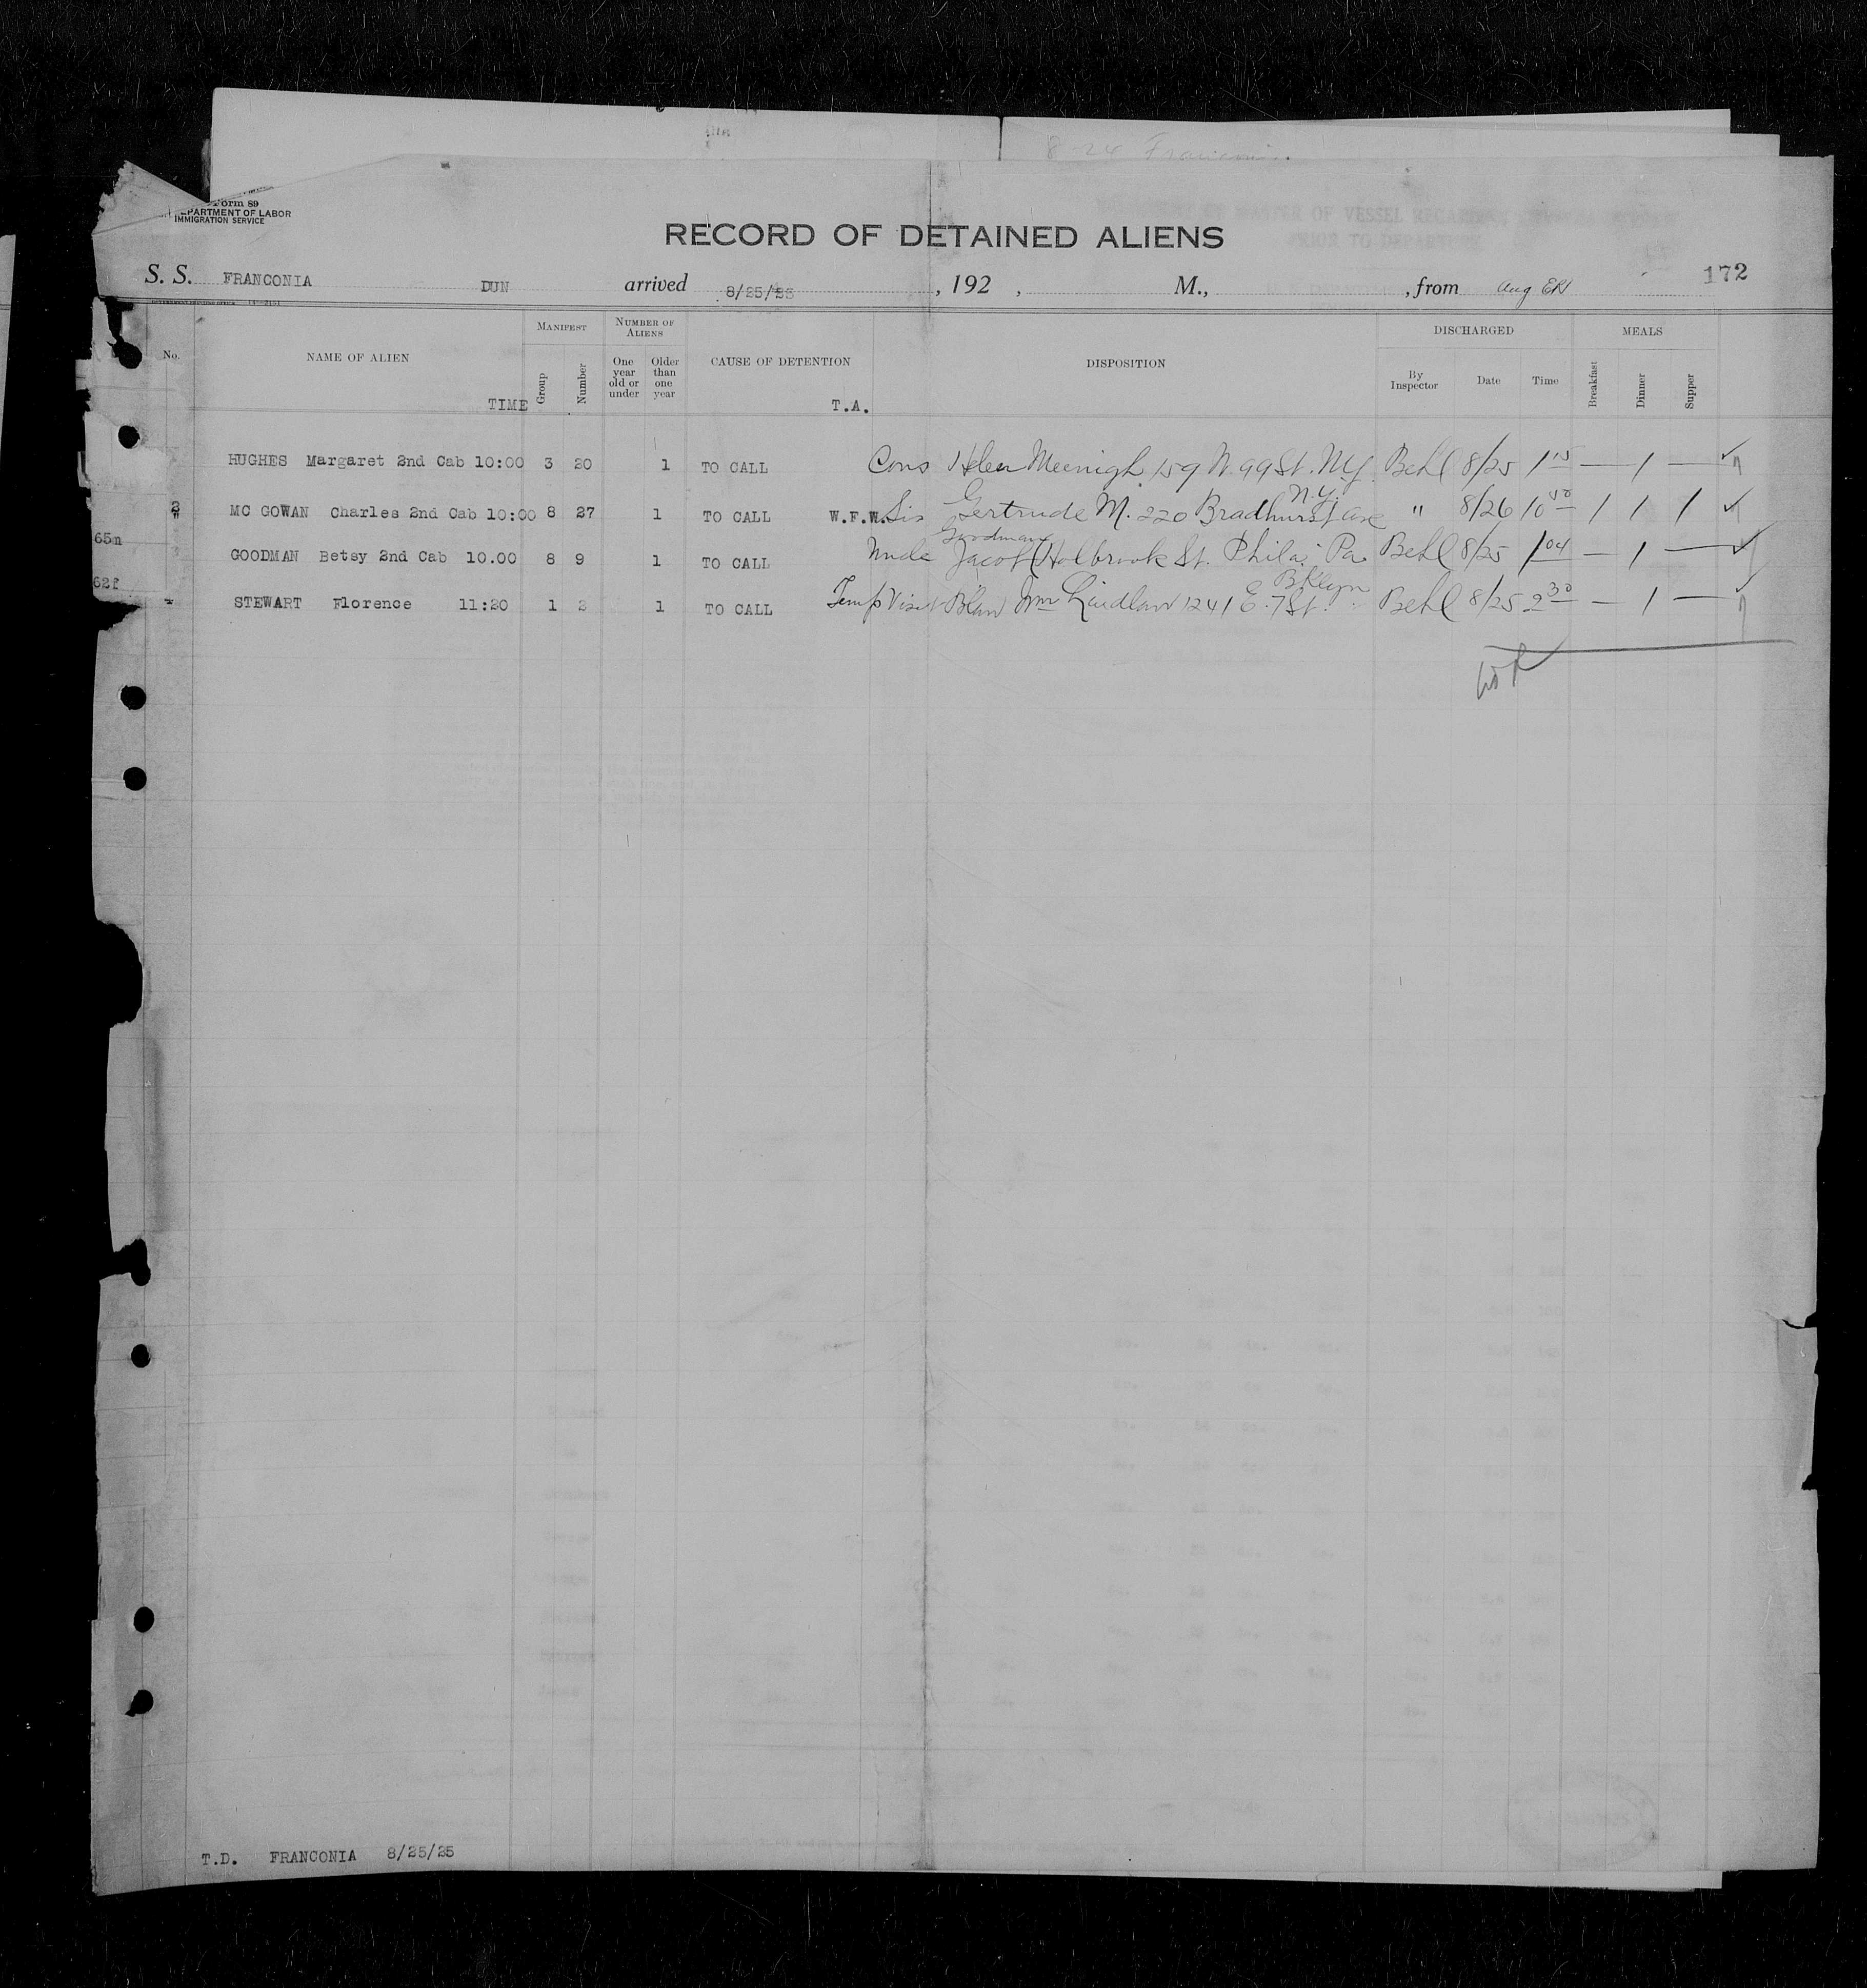 Form 89
DEPARTMENT OF LABOR
IMMIGRATION SERVICE
RECORD OF DETAINED ALIENS
S. S. FRANCONIA DUN arrived 8/25/25, 192 , M., , from 172
No. NAME OF ALIEN TIME MANIFEST Group Number NUMBER OF ALIENS One year old or under Older than one year CAUSE OF DETENTION T.A. DISPOSITION DISCHARGED By Inspector Date Time MEALS Breakfast Dinner Supper
HUGHES Margaret 2nd Cab 10:00 3 20 1 TO CALL Cous Helen 159 W. 99 St. NY Behl 8/25 1 15 — 1 —
2 MC GOWAN Charles 2nd Cab 10:00 8 27 1 TO CALL W.F.W. Sis Gertrude M. 220 Bradhurst Ave N.Y. " 8/26 10 1 1 1
65m
GOODMAN Betsy 2nd Cab 10.00 8 9 1 TO CALL Uncle Jacob Goodman Holbrook St. Phila. Pa Behl 8/25 1 04 — 1 —
62f
4 STEWART Florence 11:20 1 2 1 TO CALL Temp Visit Wm Laidlaw 1241 E. 7 St. Bklyn Behl 8/25 2 30 — 1 —
T.D. FRANCONIA 8/25/25